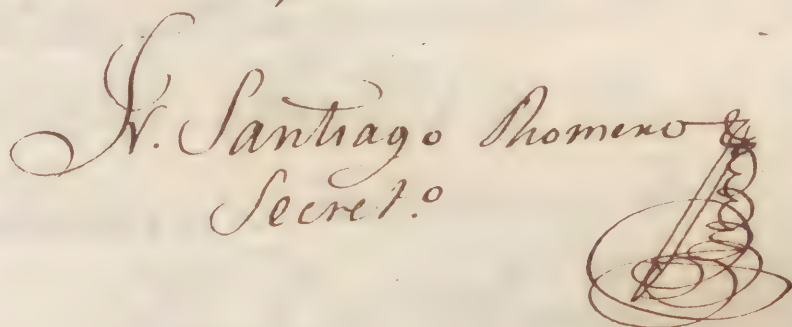 Jv. Santiago Romero
Secret.º